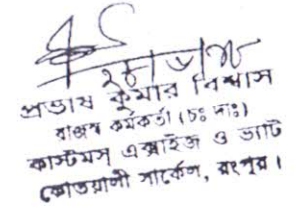 প্রভাষ কুমার বিশ্বাস
রাজস্ব কর্মকর্তা (চঃ দাঃ)
কাস্টমস এক্সাইজ ও ভ্যাট
কোতয়ালী সার্কেল, রংপুর।